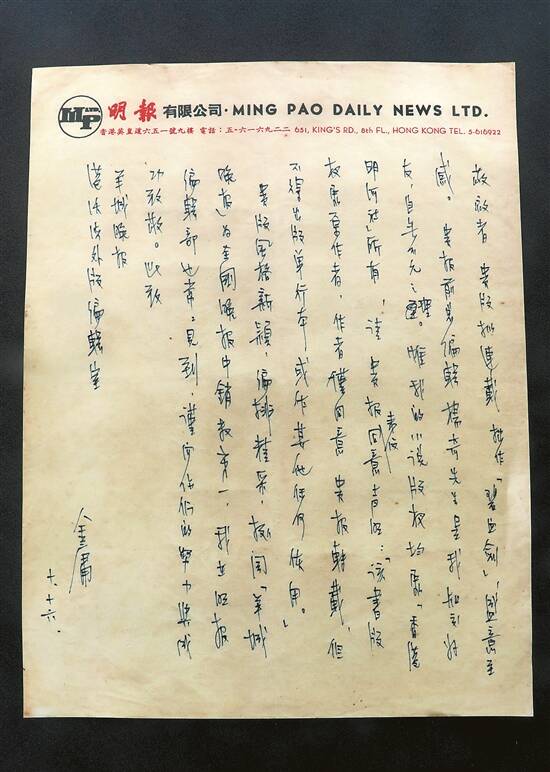 MP LTD.
明報有限公司·MING PAO DAILY NEWS LTD.
香港英皇道六五一號九樓 電話：五·六一六九二二 651, KING'S RD., 8th FL., HONG KONG TEL. 5-616922
敬啟者 貴版擬連載 拙作「碧血劍」，盛意至
感。貴報前總編輯楊奇先生是我相知好
友，自無不允之理。惟我的小說版權均屬「香港
明河社」所有，請 貴報同意：「該書版
權屬原作者，作者僅同意 貴報轉載，但
不得出版單行本或作其他任何使用。」
貴版風格新穎，編排精采，據聞「羊城
晚報」為全國晚報中銷數第一，我在明報
編輯部也常常見到，謹向你們的努力與成
功致敬。此致
羊城晚報
港澳海外版編輯室
金庸
十、十六、